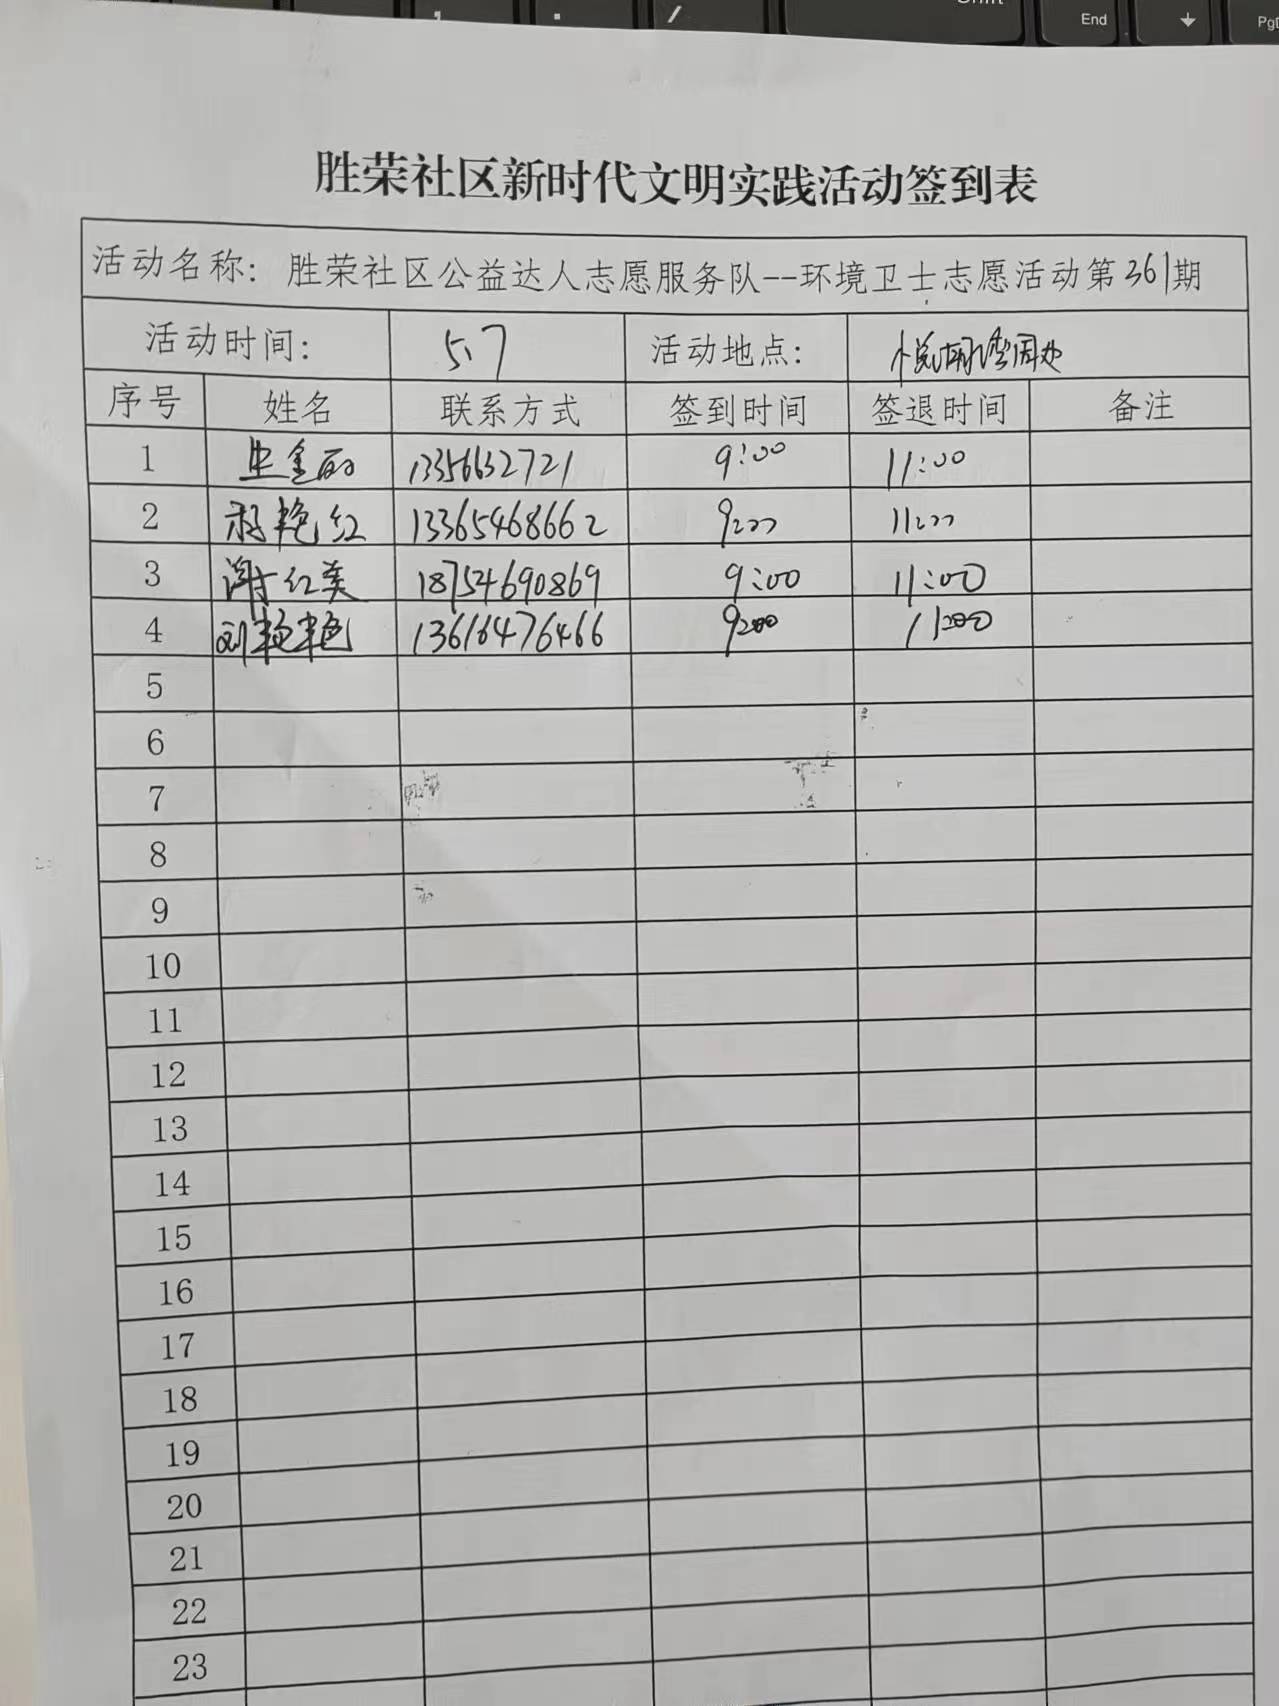 Shift
End
PgD
胜荣社区新时代文明实践活动签到表
活动名称：胜荣社区公益达人志愿服务队--环境卫士志愿活动第361期
活动时间： 5.7 活动地点：
序号 姓名 联系方式 签到时间 签退时间 备注
1 13356632721 9:00 11:00
2 艳红 13365468662 9:00 11:00
3 谢红英 18754690869 9:00 11:00
4 刘艳艳 13616476466 9:00 11:00
5
6
7
8
9
10
11
12
13
14
15
16
17
18
19
20
21
22
23